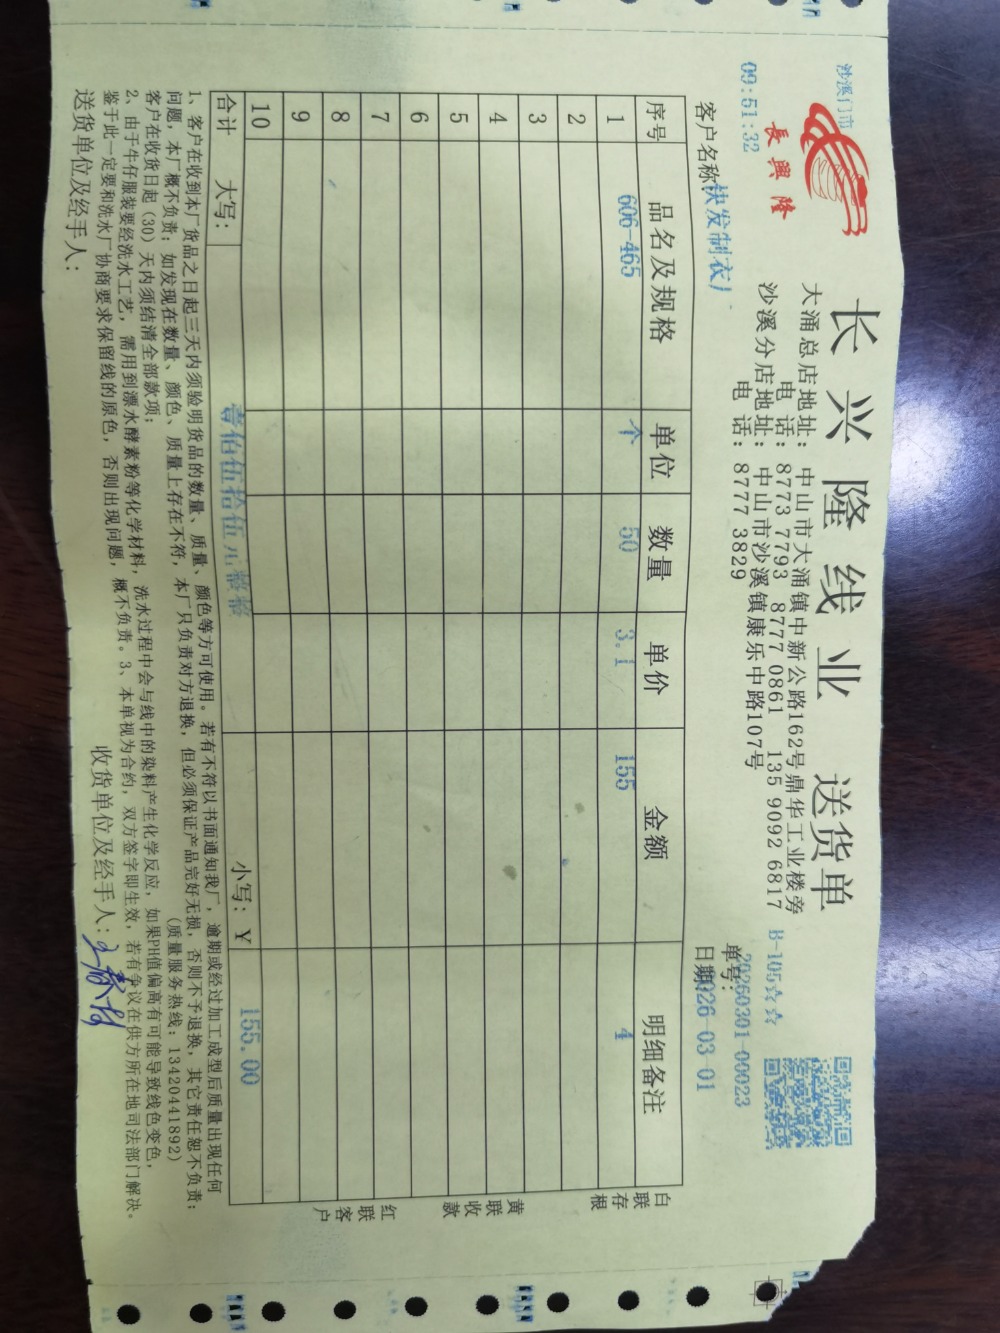 沙溪门市
09:51:32
長興隆
长兴隆线业 送货单
大涌总店地址：中山市大涌镇中新公路162号鼎华工业楼旁
电 话：8773 7793 8777 0861 135 9092 6817
沙溪分店地址：中山市沙溪镇康乐中路107号
电 话：8777 3829
B-105☆☆
单号：20260301-00023
客户名称：快发制衣厂
日期：2026-03-01
序号 品名及规格 单位 数量 单价 金额 明细备注
1 606-465 个 50 3.1 155 4
2
3
4
5
6
7
8
9
10
合计 大写：壹佰伍拾伍元整 小写：¥ 155.00
白联存根
黄联收款
红联客户
1、客户在收到本厂货品之日起三天内须验明货品的数量、质量、颜色等方可使用。若有不符以书面通知我厂，逾期或经过加工成型后质量出现任何
问题，本厂概不负责；如发现在数量、颜色、质量上存在不符，本厂只负责对方退换，但必须保证产品完好无损，否则不予退换，其它责任恕不负责；
客户在收货日起（30）天内须结清全部款项；（质量服务热线：13420441892）
2、由于牛仔服装要经洗水工艺，需用到漂水酵素粉等化学材料，洗水过程中会与线中的染料产生化学反应，如果PH值偏高有可能导致线色变色，
鉴于此一定要和洗水厂协商要求保留线的原色，否则出现问题，概不负责。3、本单视为合约，双方签字即生效，若有争议在供方所在地司法部门解决。
送货单位及经手人： 收货单位及经手人：